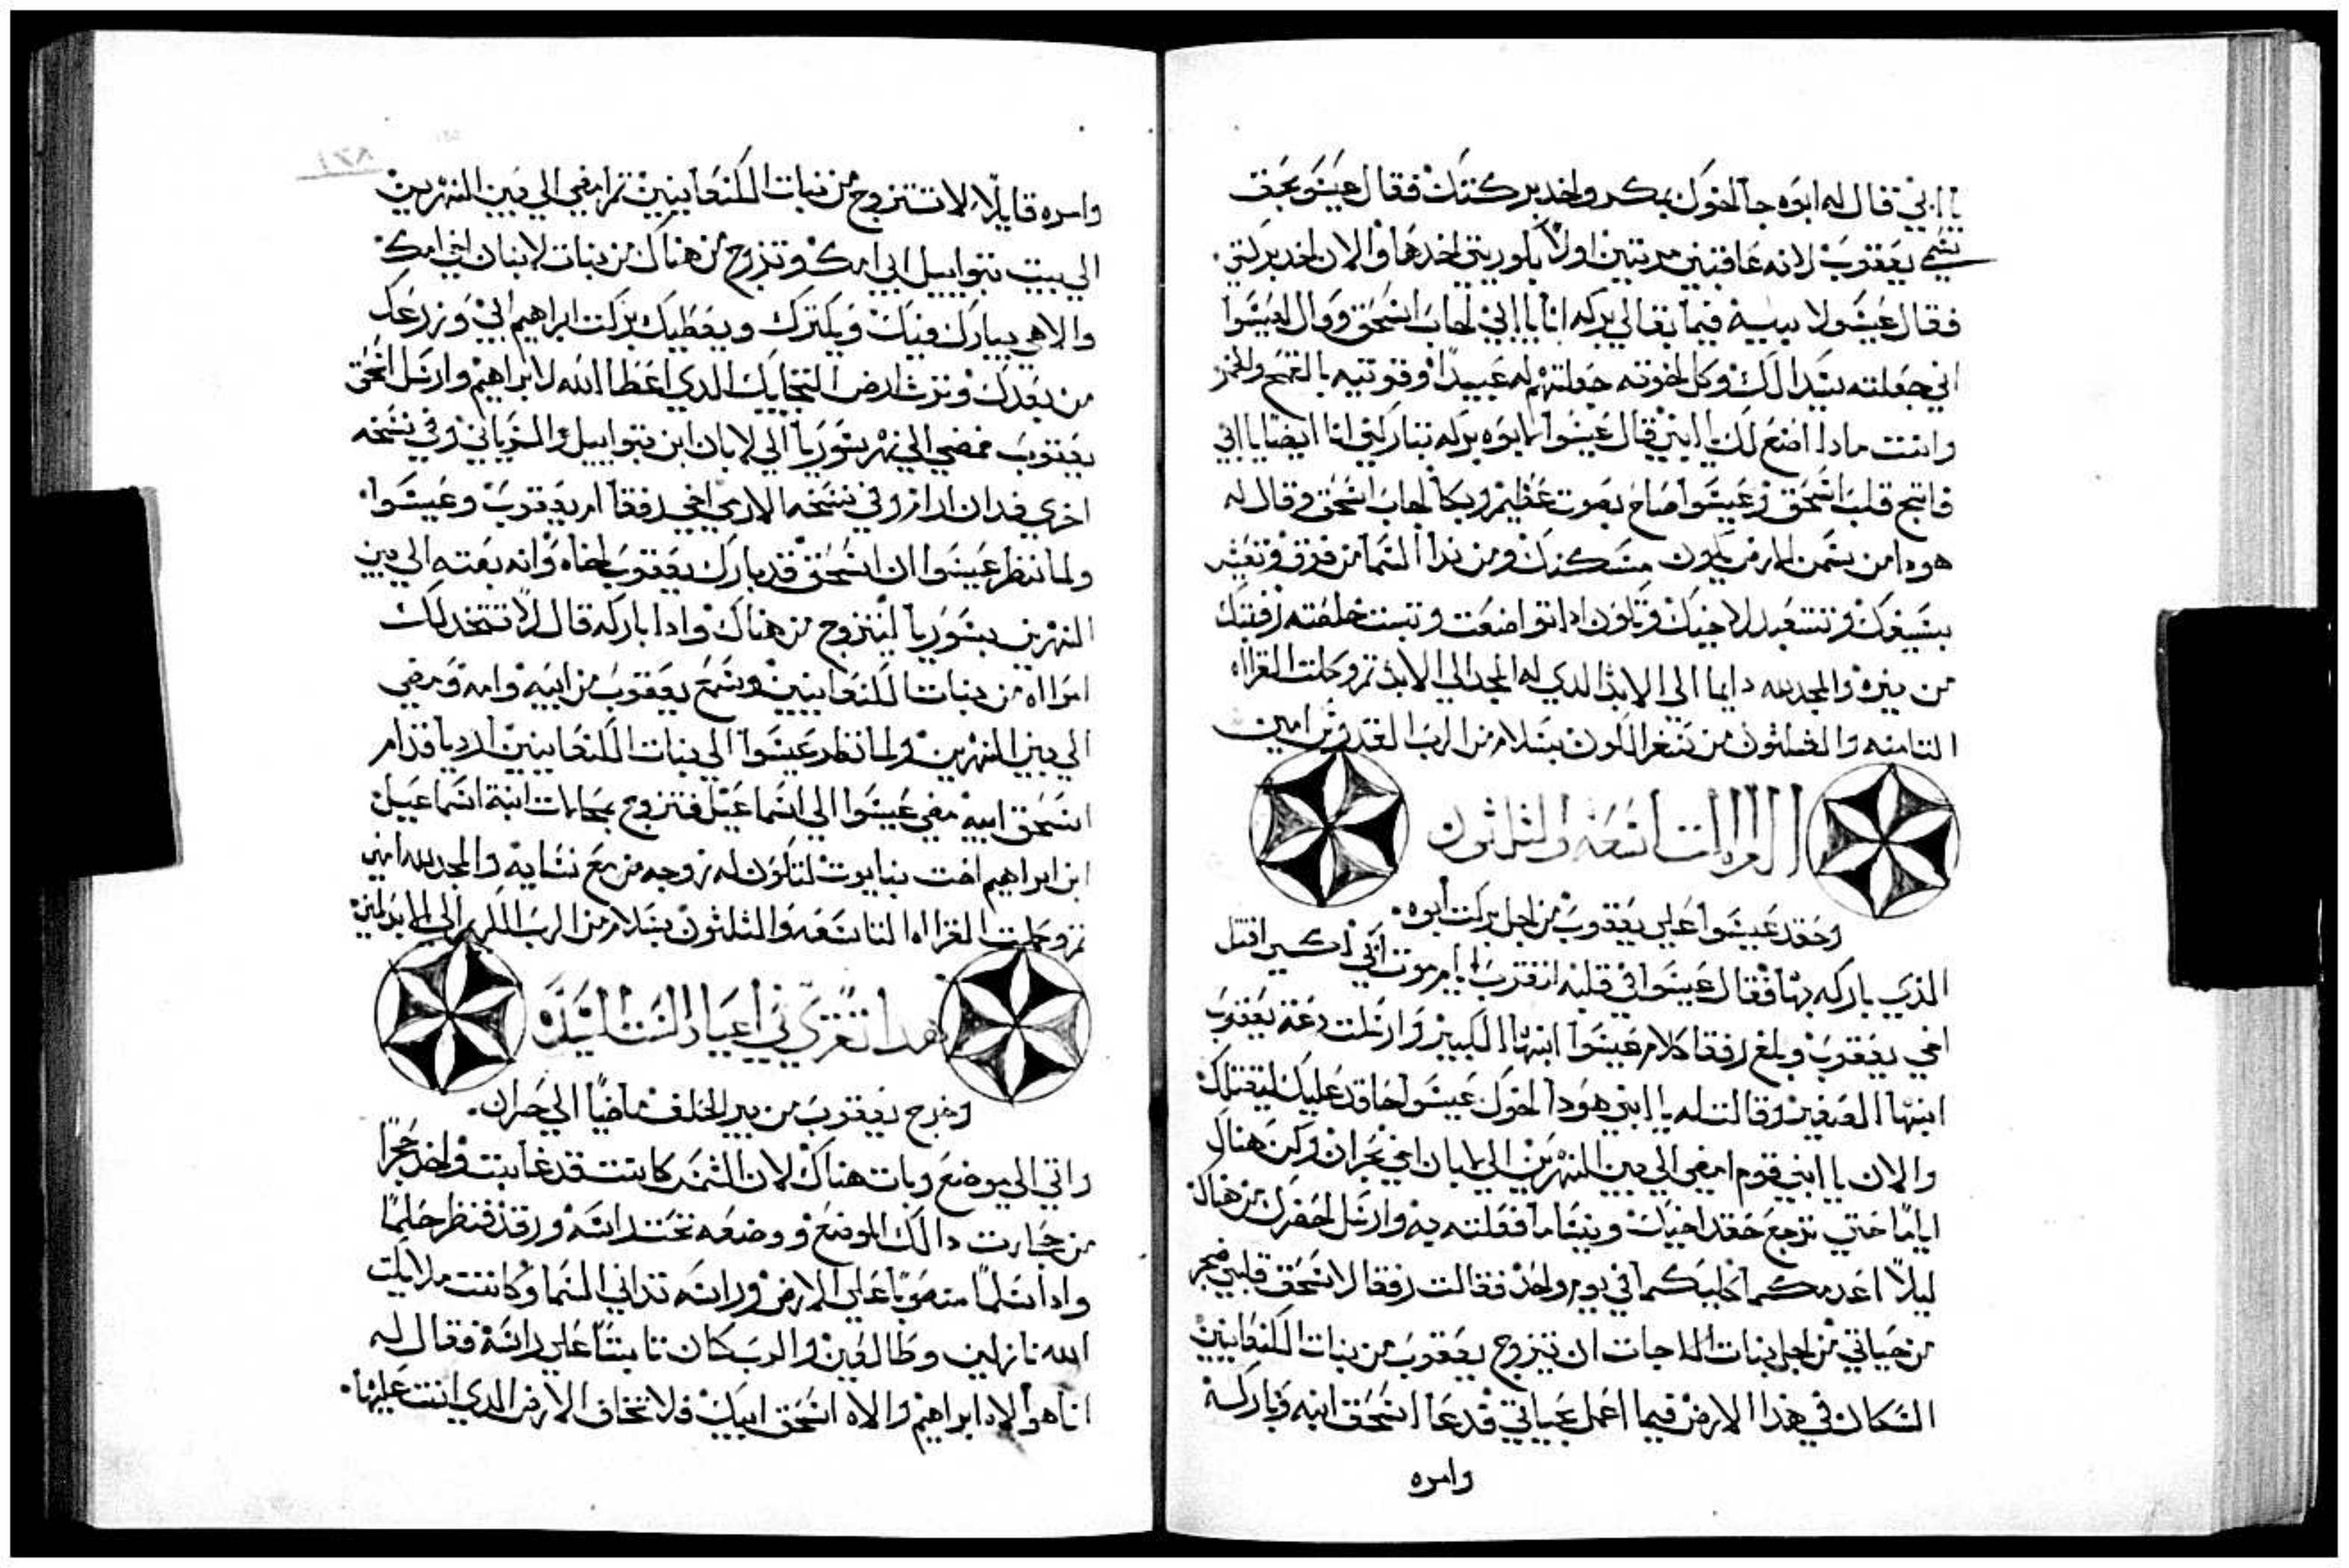 يا ابني قال له ابوه جا اخوك بمكر واخد بركتك فقال عيسو بحق
سمي يعقوب لانه عاقبني مرتين اولا بكوريتي اخدها والان اخد بركتي
فقال عيسو لابيه فيما بقا لي بركه انا يا ابي اجاب اسحق وقال لعيسوا
اني جعلته سيدا لك وكل اخوته جعلتهم له عبيدًا وقوتيه بالقمح والخمر
وانت مادا اصنع لك يا ابني قال عيسوا لابوه بركه تباركني انا ايضا يا ابي
قلب اسحق وعيسوا صاح بصوت عظيم وبكا اجاب اسحق وقال له
هودا من سمن الارض يكون مسكنك ومن ندا السما من فوق وتعيش
بسيفك وتستعبد لاخيك ويكون ادا تواضعت
والمجد لله دايما الي الابد الدي له المجد الي الابد تم وكملت القرااه
التامنه والتلتون من سفر التكوين بسلام من الرب القدوس امين
القراات التاسعه والثلثون
وحقد عيسوا علي يعقوب من اجل بركت ابوه
الذي باركه بها فقال عيسوا في قلبه اقترب ايام موت ابي اكسي اقتل
اخي يعقوب وبلغ رفقا كلام عيسوا ابنها الكبير وارسلت دعة يعقوب
ابنها الصغير وقالت له يا ابني هودا اخوك عيسوا حاقد عليك ليقتلك
والان يا ابني قوم امضي الي بين النهرين الي لابان اخي بحران وكن هناك
ايامًا حتي ترجع حقد اخيك وينسا ما فعلته به وارسل احضرك من هناك
ليلا اعدمكما كليكما في يوم واحد فقالت رفقا لاسحق قلبي ضجر
من حياتي من اجل بنات الحاجات ان تيزوج يعقوب من بنات الكنعانيين
السكان في هذا الارض فيما اعمل بحياتي فدعا اسحق ابنه وباركه
وامره
وامره قايلًا لا تتزوج من بنات الكنعانيين تم امضي الي بين النهرين
الي بيت بتواييل ابي امك وتزوج من هناك من بنات لابان اخي امك
والاهي يبارك فيك ويكترك ويعطيك بركت ابراهيم ابي وزرعك
من بعدك وترث ارض الدي اعطا الله لابراهيم وارسل اسحق
يعقوب فمضي الي نهر سوريا الي لابان ابن بتواييل السرياني وفي نسخه
اخري فدان ارام وفي نسخه الارمي اخي رفقا ام يعقوب وعيسوا
ولما نظر عيسوا ان اسحق قد بارك يعقوب اخاه وانه بعته الي بين
النهرين بسوريا ليتزوج من هناك وادا باركه قال لا تتخد لك
امرااه من بنات الكنعانيين وسمع يعقوب من ابيه وامه ومضي
الي بين النهرين ولما نظر عيسوا الي بنات الكنعانيين ارديا قدام
اسحق ابيه مضي عيسوا الي اسماعيل فتزوج بمحالات ابنة اسماعيل
ابن ابراهيم اخت نبايوت لتكون له زوجه من مع نسايه والمجد لله امين
تم وكملت القرااه التاسعه والثلثون بسلام من الرب الي الابد امين
هدا تقري في اعياد الست السيده
وخرج يعقوب من بير الحلف ماضيًا الي حران
واتي الي موضع وبات هناك لان الشمس كانت قد غابت واخد حجرًا
من حجارت دالك الموضع ووضعه تحت راسه ورقد فنظر حلمًا
وادا سلمًا منصوبًا علي الارض وراسه تداني السما وكانت ملايكت
الله نازلين وطالعين والرب كان تابتًا علي راسه فقال له
انا هو الاه ابراهيم والاه اسحق ابيك فلا تخاف الارض الدي انت عليها